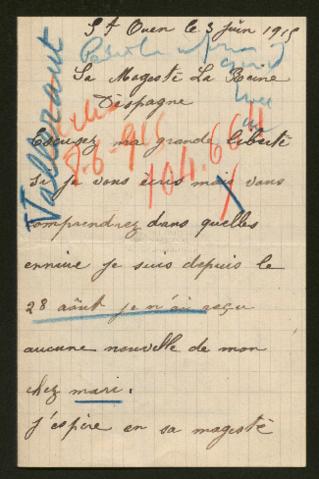 St Ouen le 3 juin 1915
Sa Magesté La Reine
D'espagne
Vallerant
8-6-915
104.664
Excusez ma grande liberté
Si je vous écris mais vous
comprendrez dans quelles
ennuie je suis depuis le
28 août je n'ai reçu
aucune nouvelle de mon
chez mari.
j'espère en sa magesté